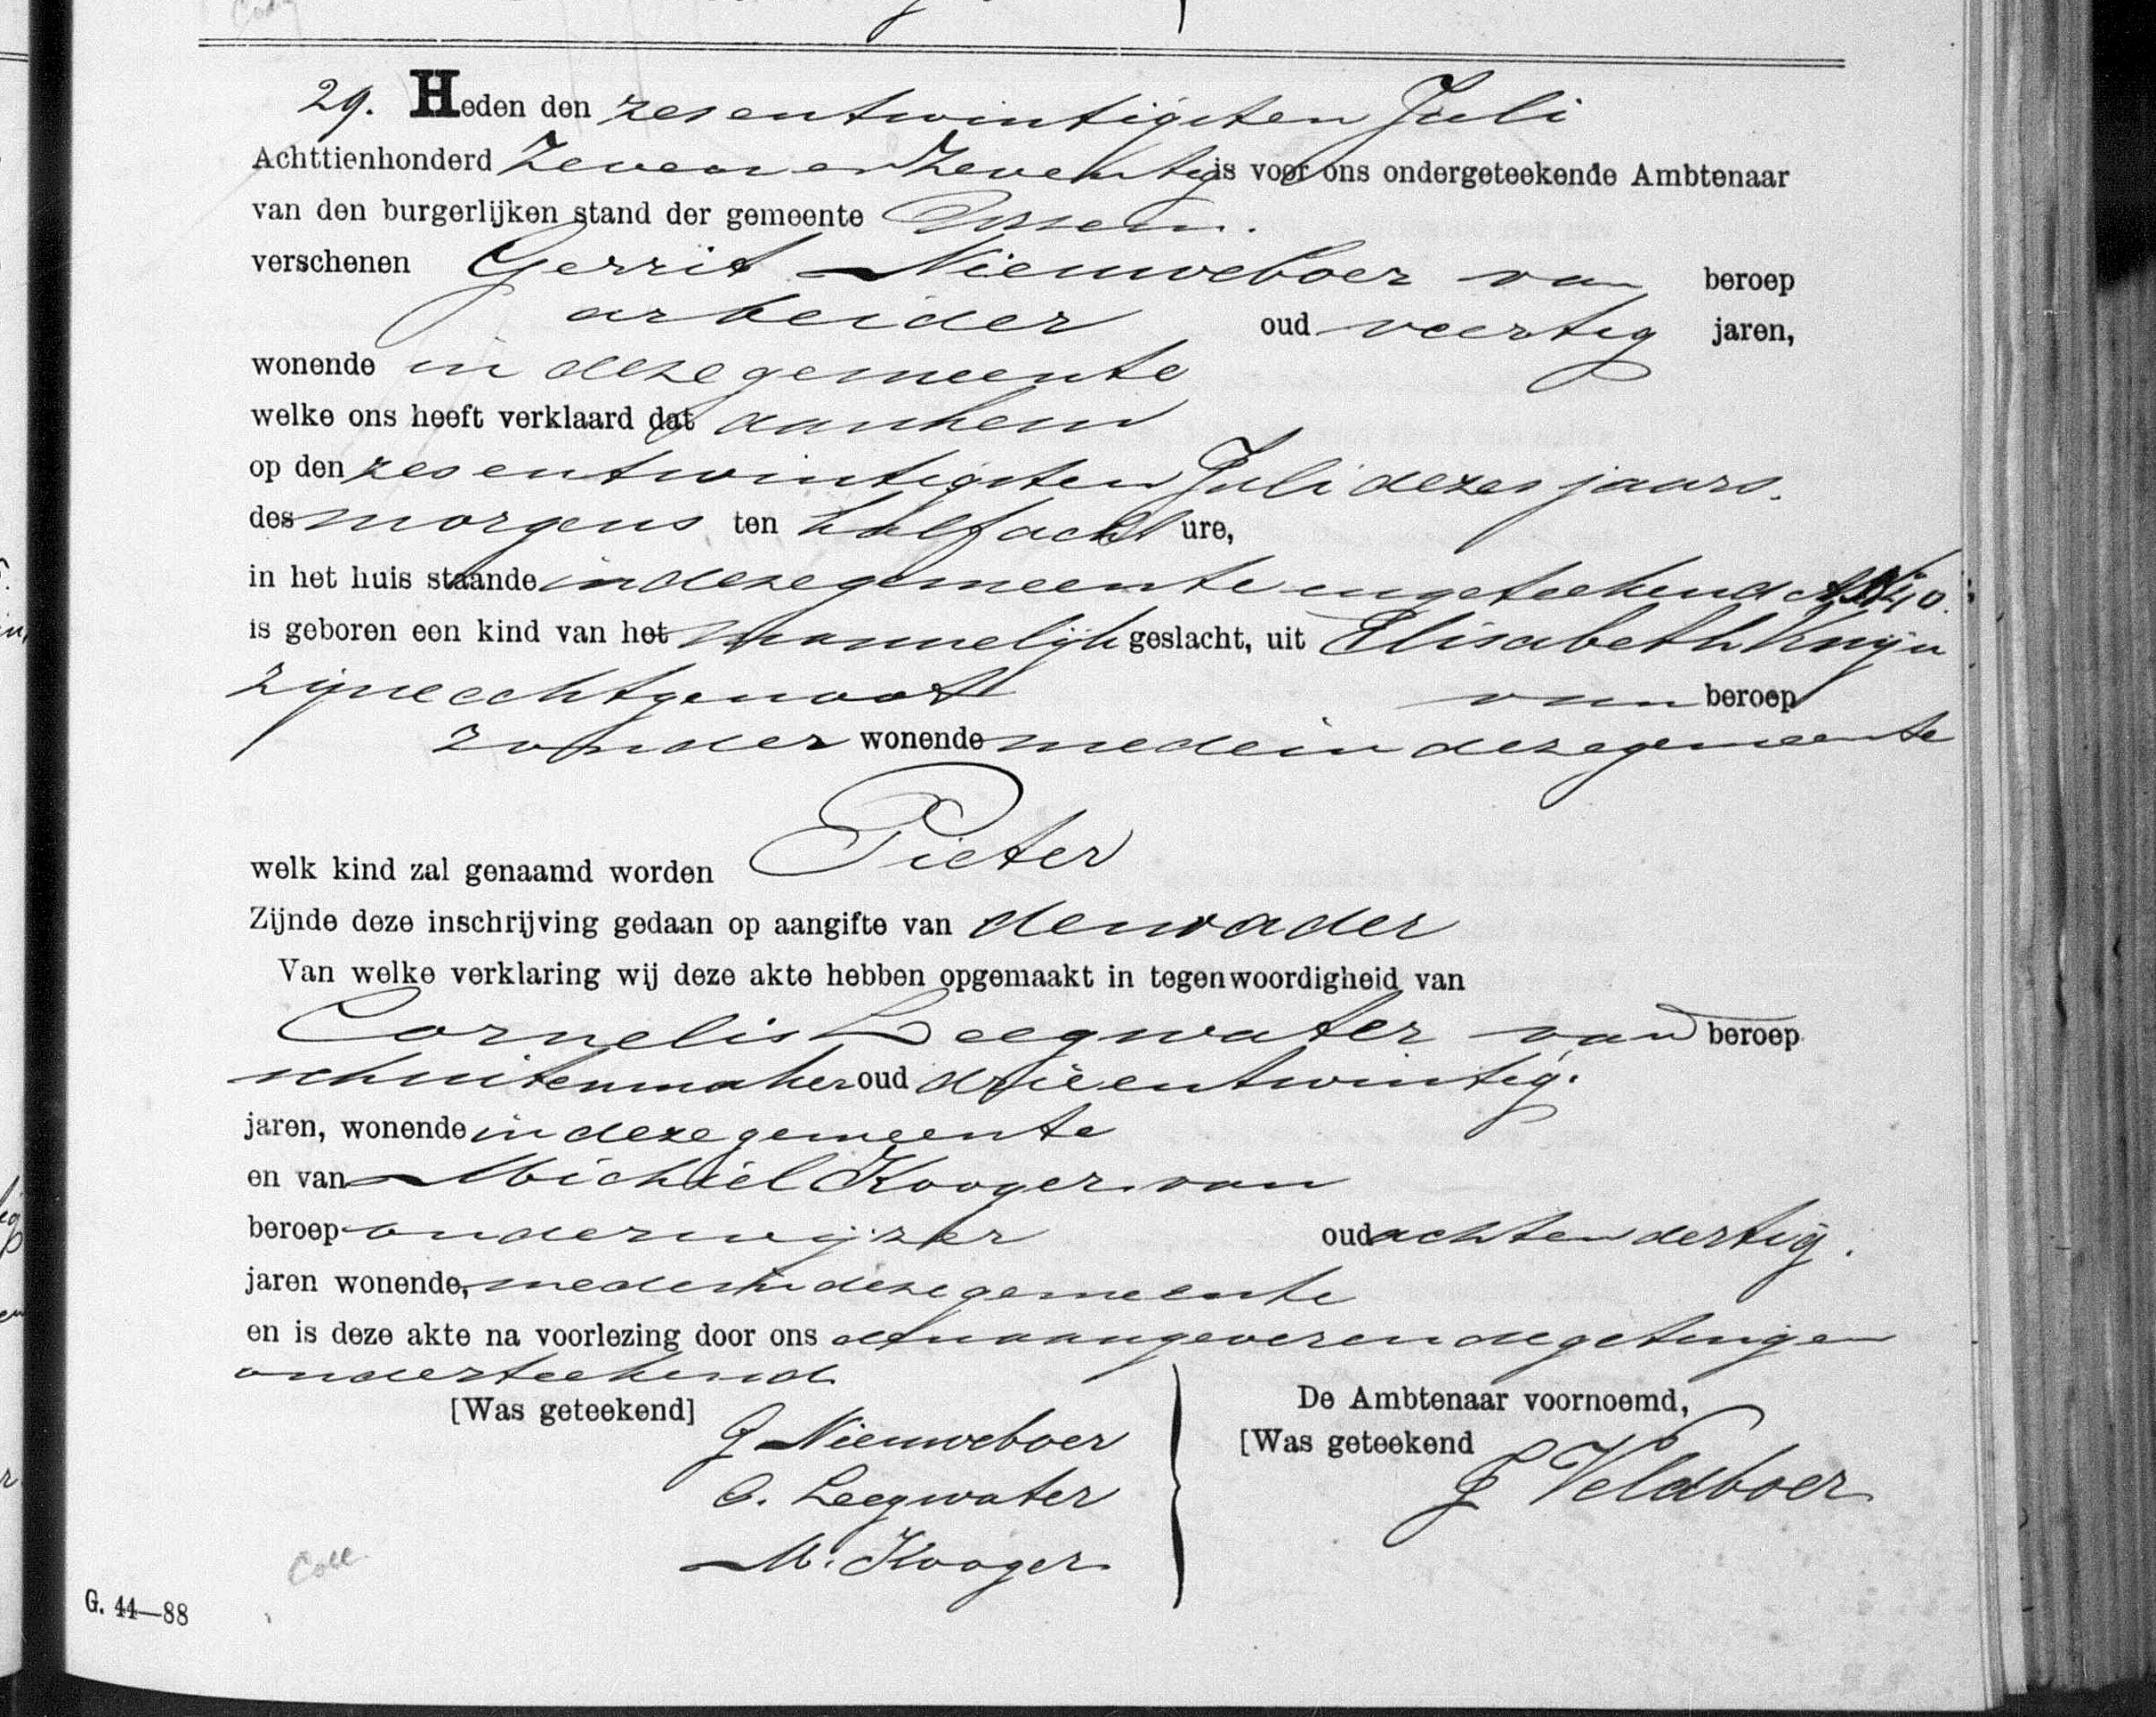 29. Heden den zesentwintigsten Juli
Achttienhonderd Zeven en Zeventig is voor ons ondergeteekende Ambtenaar
van den burgerlijken stand der gemeente Ursem.
verschenen Gerrit Nieuweboer van beroep
arbeider oud veertig jaren,
wonende in deze gemeente
welke ons heeft verklaard dat aan hem
op den zesentwintigsten Juli dezes jaars.
des morgens ten half acht ure,
in het huis staande in deze gemeente ingeteekend
is geboren een kind van het mannelijk geslacht, uit Elisabeth Knijn
zijne echtgenoot van beroep
zonder wonende mede in deze gemeente
welk kind zal genaamd worden Pieter
Zijnde deze inschrijving gedaan op aangifte van den vader
Van welke verklaring wij deze akte hebben opgemaakt in tegenwoordigheid van
Cornelis Leegwater van beroep
schuitenmaker oud drieentwintig.
jaren, wonende in deze gemeente
en van Michiel Kooger van
beroep onderwijzer oud achtendertig.
jaren wonende, mede in deze gemeente
en is deze akte na voorlezing door ons den aangever en de getuigen
onderteekend.
[Was geteekend] De Ambtenaar voornoemd,
G Nieuweboer [Was geteekend
C. Leegwater Veldboer
M. Kooger
Coll
G. 44—88